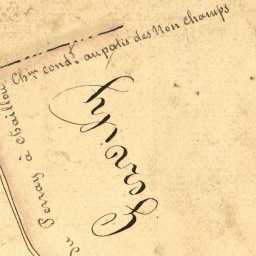 Ch.in cond.t au patis des Non champs
du Perray à Chaillou
Gerzilly